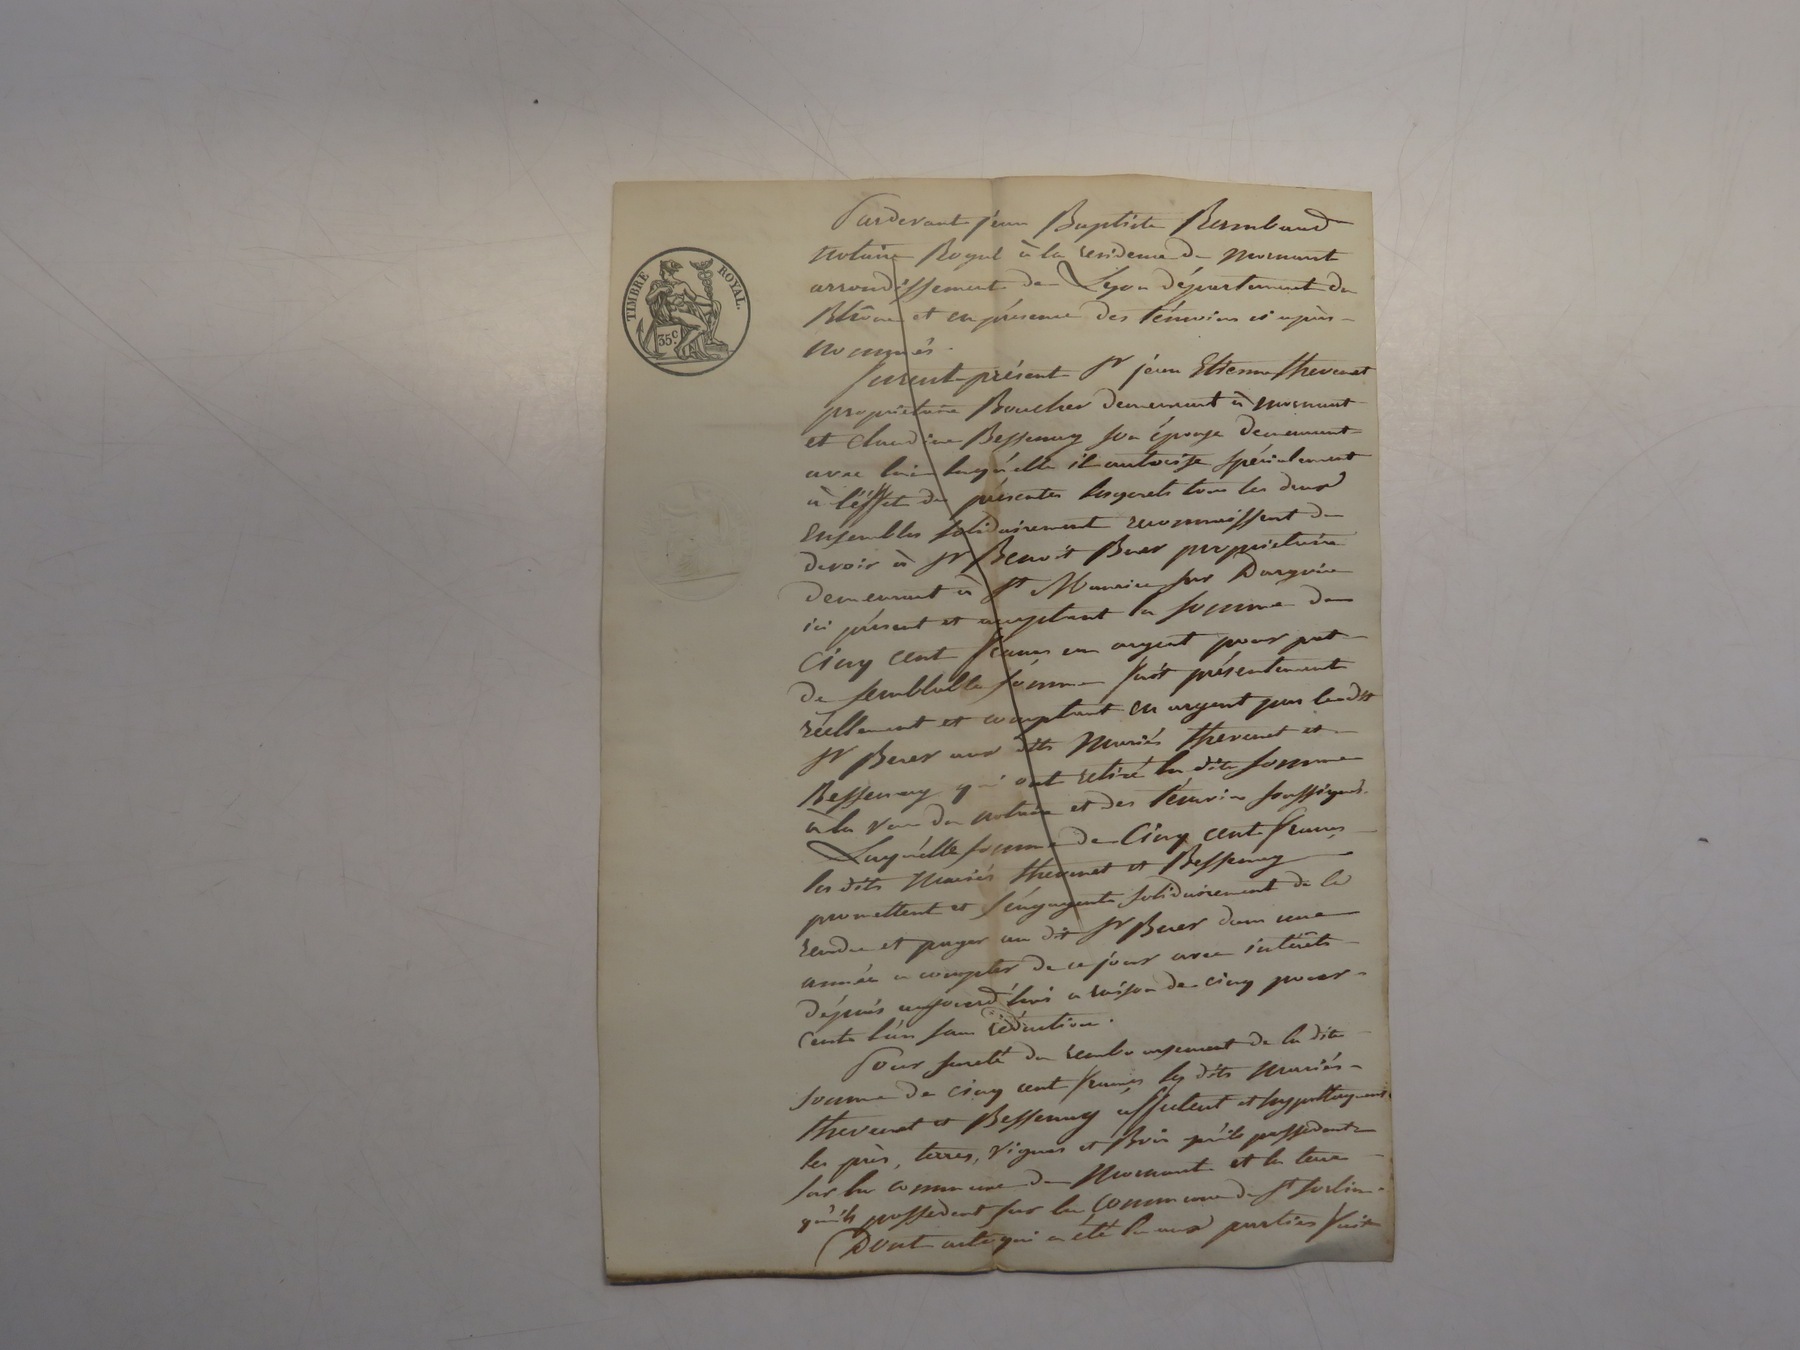 TIMBRE ROYAL.
35c.
Pardevant jean Baptiste Rambaud
notaire Royal à la residence de mornant
arrondissement de Lyon département du
Rhône et en présence des témoins ci après
nommés.
furent présent Sr jean Etienne thevenet
propriétaire Boucher demeurant à mornant
et claudine Bessenay son épouse demeurant
avec lui laquelle il autorise spécialement
à l'éffet des présentes lesquels tous les deux
Ensembles solidairement reconnaissent de
devoir à Sr Benoit Buer propriétaire
demeurant à St Maurice sur Dargoire
ici présent et acceptant la somme de
Cinq cent francs en argent pour pret
de semblable somme fait présentement
réellement et comptant en argent par le dit
Sr Buer aux dits mariés thevenet et
Bessenay qui ont retiré la dite somme
à la vue du notaire et des témoins soussignés.
Laquelle somme de Cinq cent francs
les dits mariés thevenet et Bessenay
promettent et s'engagent solidairement de la
rendre et payer au dit Sr Buer dans une
année a compter de ce jour avec intérêts
dépuis aujourd'hui a raison de cinq pour
cent l'an sans réduction.
Pour sureté du remboursement de la dite
somme de cinq cent francs les dits mariés
thevenet et Bessenay affectent et hypothequent
les près, terres, vignes et Bois qu'ils possedent
sur la commune de mornant et la terre
qu'ils possedent sur la commune de St sorlin.
Dont acte qui a été lu aux parties fait